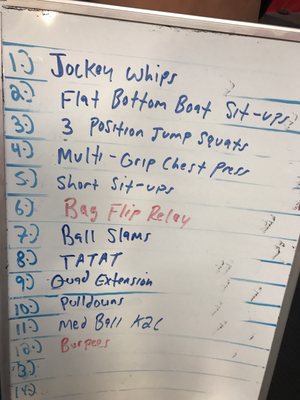 1.) Jockey Whips
2.) Flat Bottom Boat Sit-ups
3.) 3 Position Jump Squats
4.) Multi-Grip Chest Press
5.) Short Sit-ups
6.) Bag Flip Relay
7.) Ball Slams
8.) TATAT
9.) Quad Extension
10.) Pulldowns
11.) Med Ball K2C
12.) Burpees
13.)
14.)